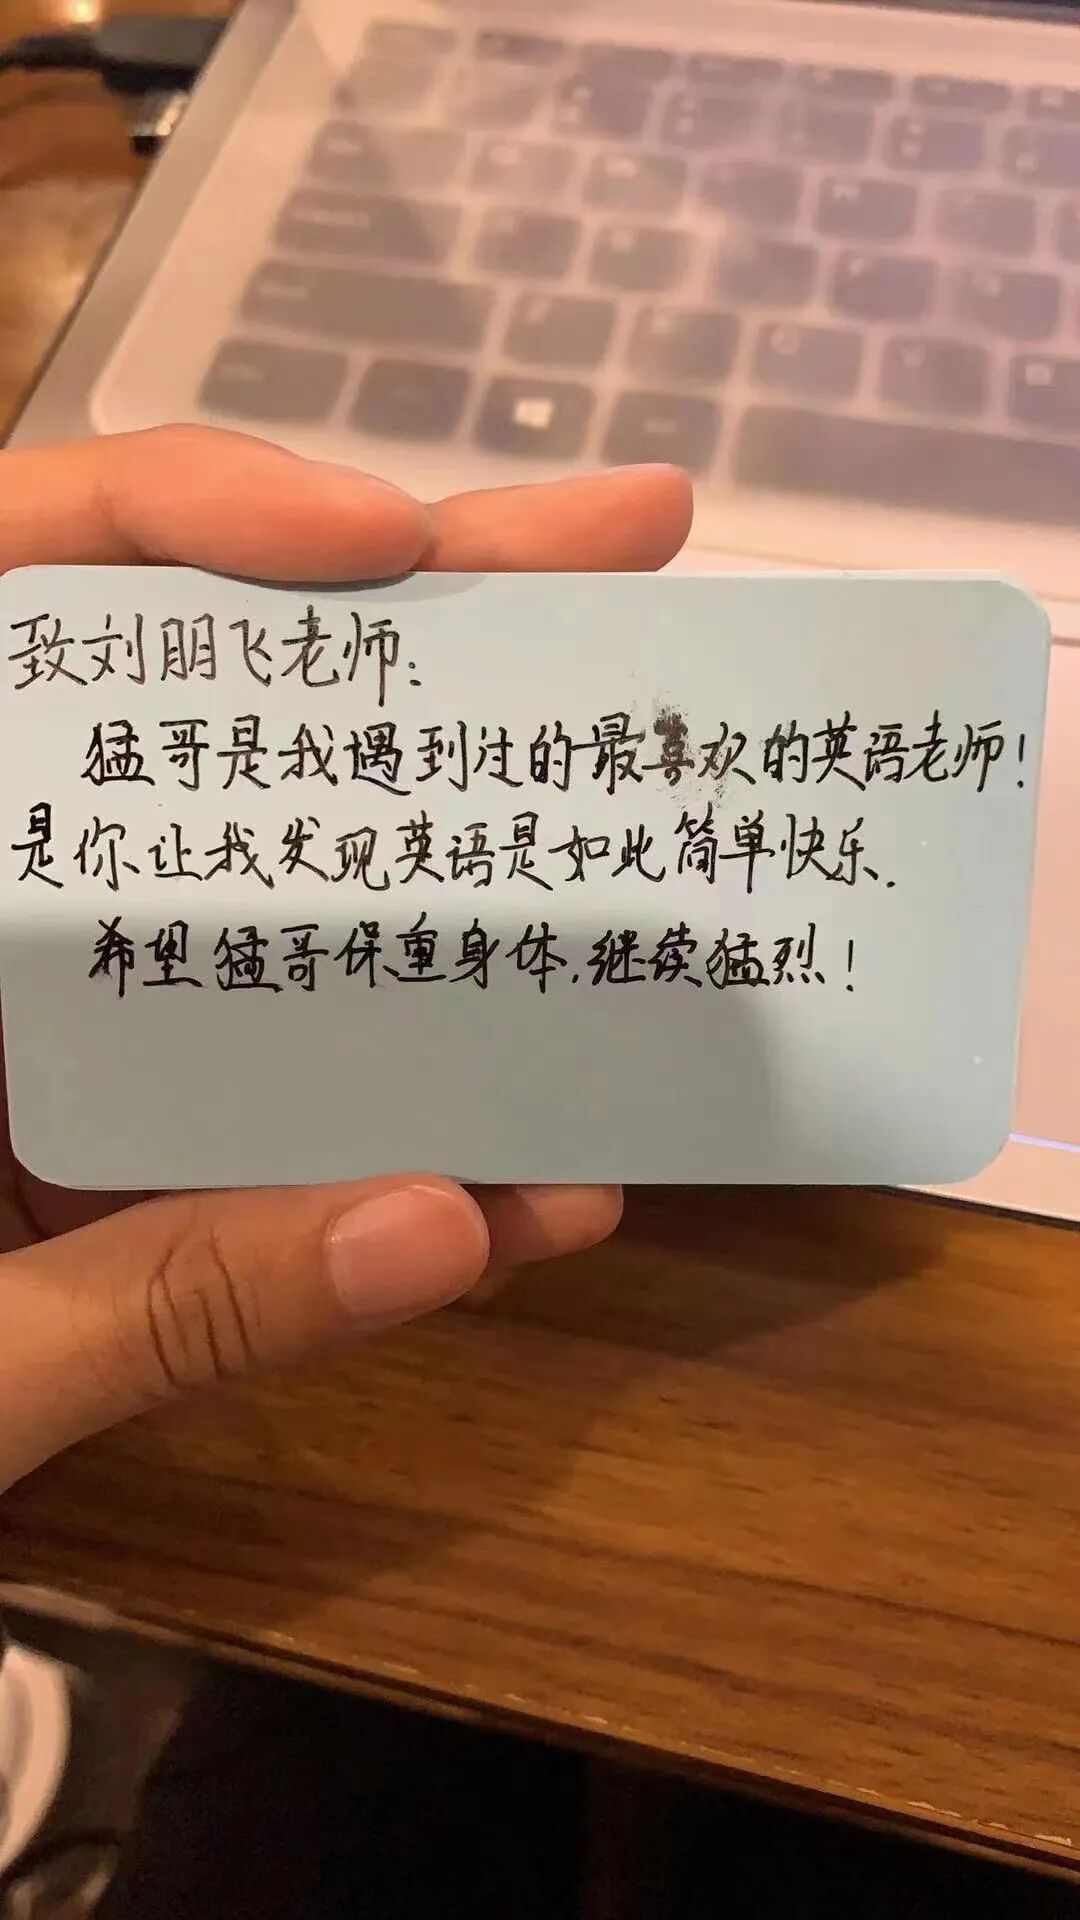 致刘朋飞老师:
猛哥是我遇到过的最喜欢的英语老师!
是你让我发现英语是如此简单快乐.
希望猛哥保重身体,继续猛烈!